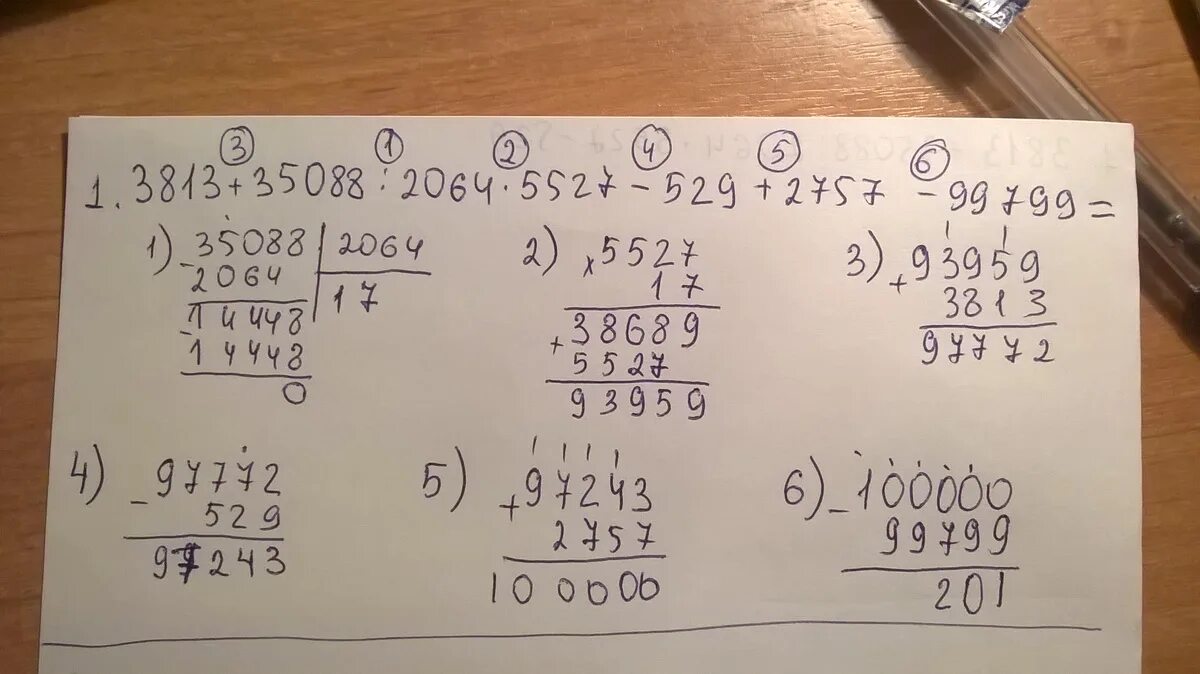 ③ ① ② ④ ⑤ ⑥
1. 3813 + 35088 : 2064 · 5527 - 529 + 2757 - 99799 =
1) - 35088 | 2064
2064 | 17
- 14448
14448
0
2) × 5527
17
+ 38689
5527
93959
3) + 93959
3813
97772
4) - 97772
529
97243
5) + 97243
2757
100000
6) - 100000
99799
201